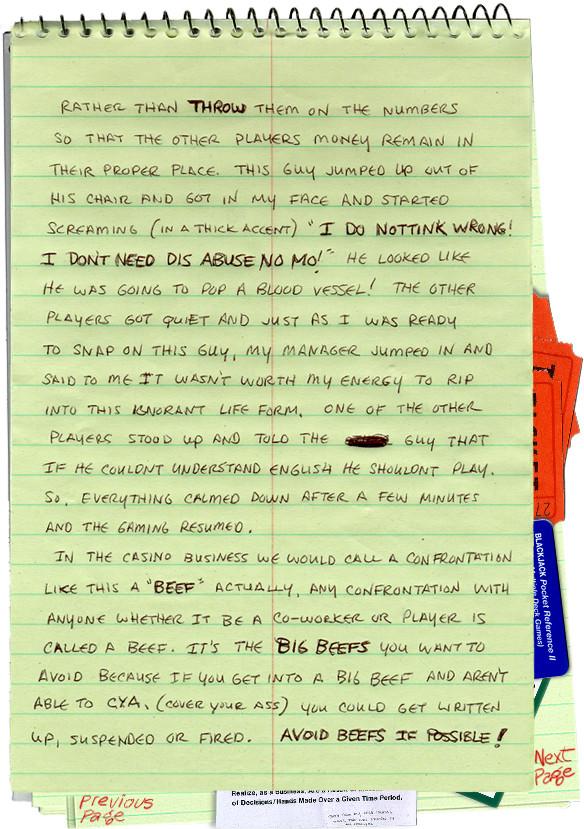 RATHER THAN THROW THEM ON THE NUMBERS
SO THAT THE OTHER PLAYERS MONEY REMAIN IN
THEIR PROPER PLACE. THIS GUY JUMPED UP OUT OF
HIS CHAIR AND GOT IN MY FACE AND STARTED
SCREAMING (IN A THICK ACCENT) "I DO NOTTINK WRONG!
I DON'T NEED DIS ABUSE NO MO!" HE LOOKED LIKE
HE WAS GOING TO POP A BLOOD VESSEL! THE OTHER
PLAYERS GOT QUIET AND JUST AS I WAS READY
TO SNAP ON THIS GUY, MY MANAGER JUMPED IN AND
SAID TO ME IT WASN'T WORTH MY ENERGY TO RIP
INTO THIS IGNORANT LIFE FORM. ONE OF THE OTHER
PLAYERS STOOD UP AND TOLD THE GUY THAT
IF HE COULDNT UNDERSTAND ENGLISH HE SHOULDNT PLAY.
SO, EVERYTHING CALMED DOWN AFTER A FEW MINUTES
AND THE GAMING RESUMED.
IN THE CASINO BUSINESS WE WOULD CALL A CONFRONTATION
LIKE THIS A "BEEF" ACTUALLY, ANY CONFRONTATION WITH
ANYONE WHETHER IT BE A CO-WORKER OR PLAYER IS
CALLED A BEEF. IT'S THE BIG BEEFS YOU WANT TO
AVOID BECAUSE IF YOU GET INTO A BIG BEEF AND AREN'T
ABLE TO CYA, (COVER YOUR ASS) YOU COULD GET WRITTEN
UP, SUSPENDED OR FIRED. AVOID BEEFS IF POSSIBLE!
27
BLACKJACK Pocket Reference II
Multiple Deck Games)
Next
Page
Previous
Page
Realize, as a Business,
of Decisions/Hands Made Over a Given Time Period.